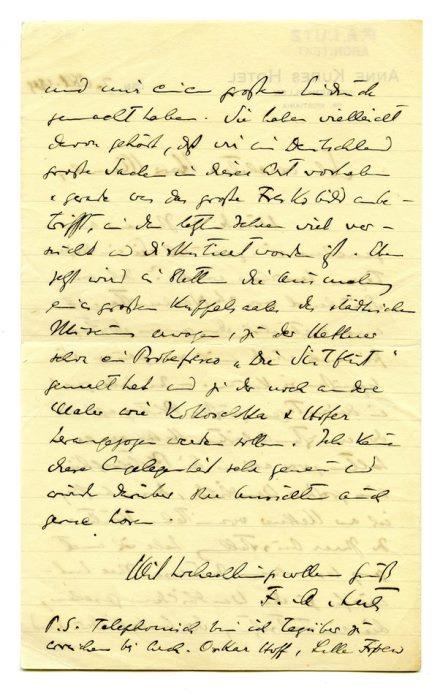 und mir einen großen Eindruck
gemacht haben. Sie haben vielleicht
davon gehört, daß wir in Deutschland
große Sachen in dieser Art vorhaben
u gerade was das große Freskobild anbe-
trifft, in den letzten Jahren viel ver-
sucht und diskutiert worden ist. Eben
jetzt wird in Stettin die Ausmalung
eines großen Kuppelsaales des städtischen
Museums erwogen, zu der
schon ein Probefresco „Die Sintflut“
gemalt hat und zu der noch andere
Maler wie Kokoschka & Hofer
herangezogen werden sollen. Ich kenne
diese Angelegenheit sehr genau und
würde darüber Ihre Ansichten auch
gerne hören.
Mit hochachtungsvollem Gruß
F. A.
P.S. Telephonisch bin ich tagüber zu
erreichen bei Oskar Hoff, Lille
ANNE KURES HOTEL
ARCHITEKT